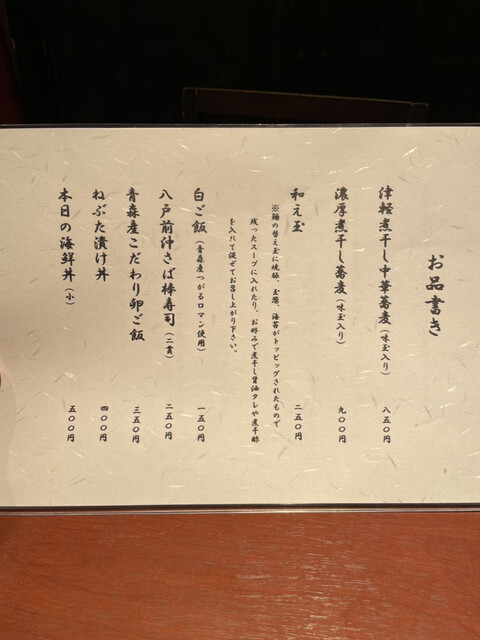 お品書き
津軽煮干し中華蕎麦(味玉入り) 八五〇円
濃厚煮干し蕎麦(味玉入り) 九〇〇円
和え玉 二五〇円
※麺の替え玉に焼豚、玉葱、海苔がトッピングされたもので
残ったスープに入れたり、お好みで煮干し醤油タレや煮干酢
を入れて混ぜてお召し上がり下さい。
白ご飯(青森産つがるロマン使用) 一五〇円
八戸前沖さば棒寿司(二貫) 二五〇円
青森産こだわり卵ご飯 三五〇円
ねぶた漬け丼 四〇〇円
本日の海鮮丼(小) 五〇〇円